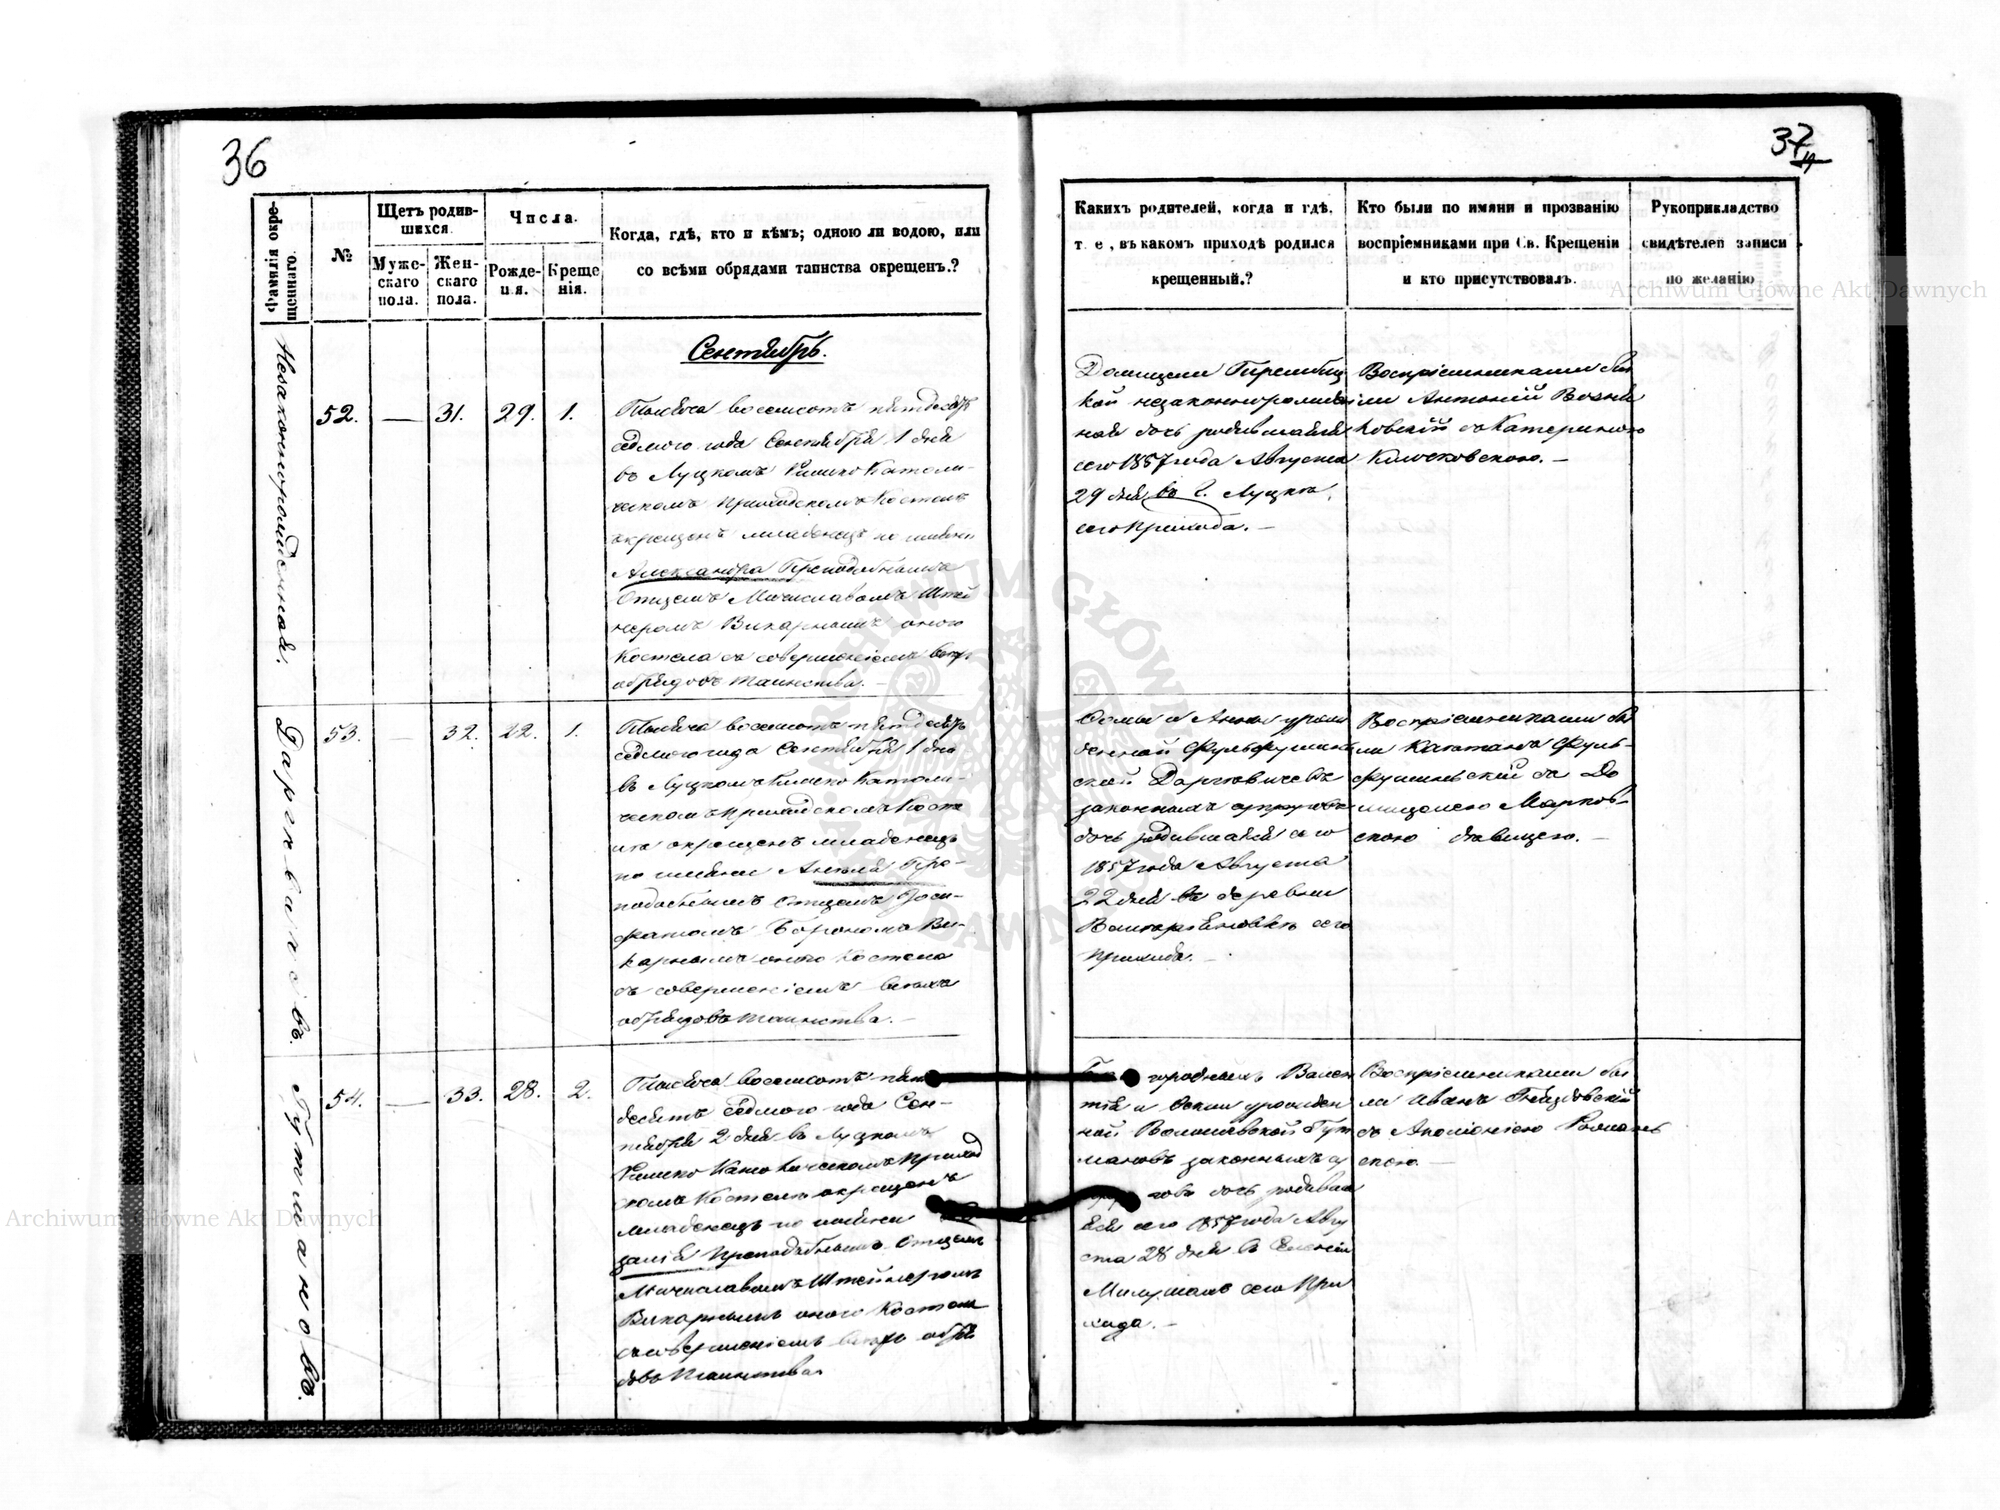 36
Фамилія окре-
щеннаго.
№
Щетъ родив-
шихся
Мужс-
скаго
пола.
Жен-
скаго
пола.
Числа.
Рожде-
нія.
Креще
нія.
Когда, гдѣ, кто и кѣмъ; одною ли водою, или
со всѣми обрядами таинства окрещенъ.?
Сентябрь.
Незаконнорожденной.
52.
—
31.
29.
1.
Тысяча восемсотъ пятдесятъ
седмого года Сентября 1 дня
въ Луцкомъ Римско Католи-
ческомъ Приходскомъ Костелѣ
окрещенъ младенецъ по имени
Александра Преподобнымъ
Отцемъ Мечиславомъ Штей
неромъ Викарнымъ оного
Костела съ совершеніемъ всѣхъ
обрядовъ таинства. —
53.
—
32.
22.
1.
Тысяча восемсотъ пятдесятъ
седмого года Сентября 1 дня
въ Луцкомъ Римско Католи-
ческомъ Приходскомъ Косте
лѣ окрещенъ младенецъ
по имени Анеля Пре-
подобнымъ Отцемъ
Викарнымъ оного Костела
съ совершеніемъ всѣхъ
обрядовъ таинства. —
Гутмановъ.
54.
—
33.
28.
2.
Тысяча восемсотъ пят
десятъ седмого года Сен-
тября 2 дня въ Луцкомъ
Римско Католическомъ Приход
скомъ Костелѣ окрещенъ
младенецъ по имени Ро
залія Преподобнымъ Отцемъ
Мечиславомъ Штейнеромъ
Викарнымъ оного Костела
совершеніемъ всѣхъ обря
довъ таинства
37
19
Какихъ родителей, когда и гдѣ,
т. е, въ какомъ приходѣ родился
крещенный.?
Кто были по имяни и прозванію
воспріемниками при Св. Крещеніи
и кто присутствовалъ.
Рукоприкладство
свидѣтелей записи
по желанію
кой незаконнорожден
ной дочь родившаяся
сего 1857 года Августа
29 дня въ г. Луцкѣ
сего прихода. —
Воспріемниками бы
ли Антоній Возни
ковскій съ Катериною
Клочковскою. —
Фомы и Анны урож
денной Фульфушин
ской
законныхъ супруговъ
дочь родившаяся сего
1857 года Августа
22 дня въ деревни
сего
прихода. —
Воспріемниками бы
ли Каэтанъ Фуль-
фушинскій съ До
мицелею Марков-
скою дѣвицею. —
городныхъ Вален
тія и урожден
ной Волошевской Гут
мановъ законныхъ су
говъ дочь родивша
яся сего 1857 года Авгу
ста 28 дня въ Селеніи
Милушахъ сего При
хода. —
Воспріемниками бы
ли Иванъ
съ Аполоніею
скою. —
Archiwum Główne Akt Dawnych
Archiwum Główne Akt Dawnych
ARCHIWUM GŁÓWNE AKT DAWNYCH